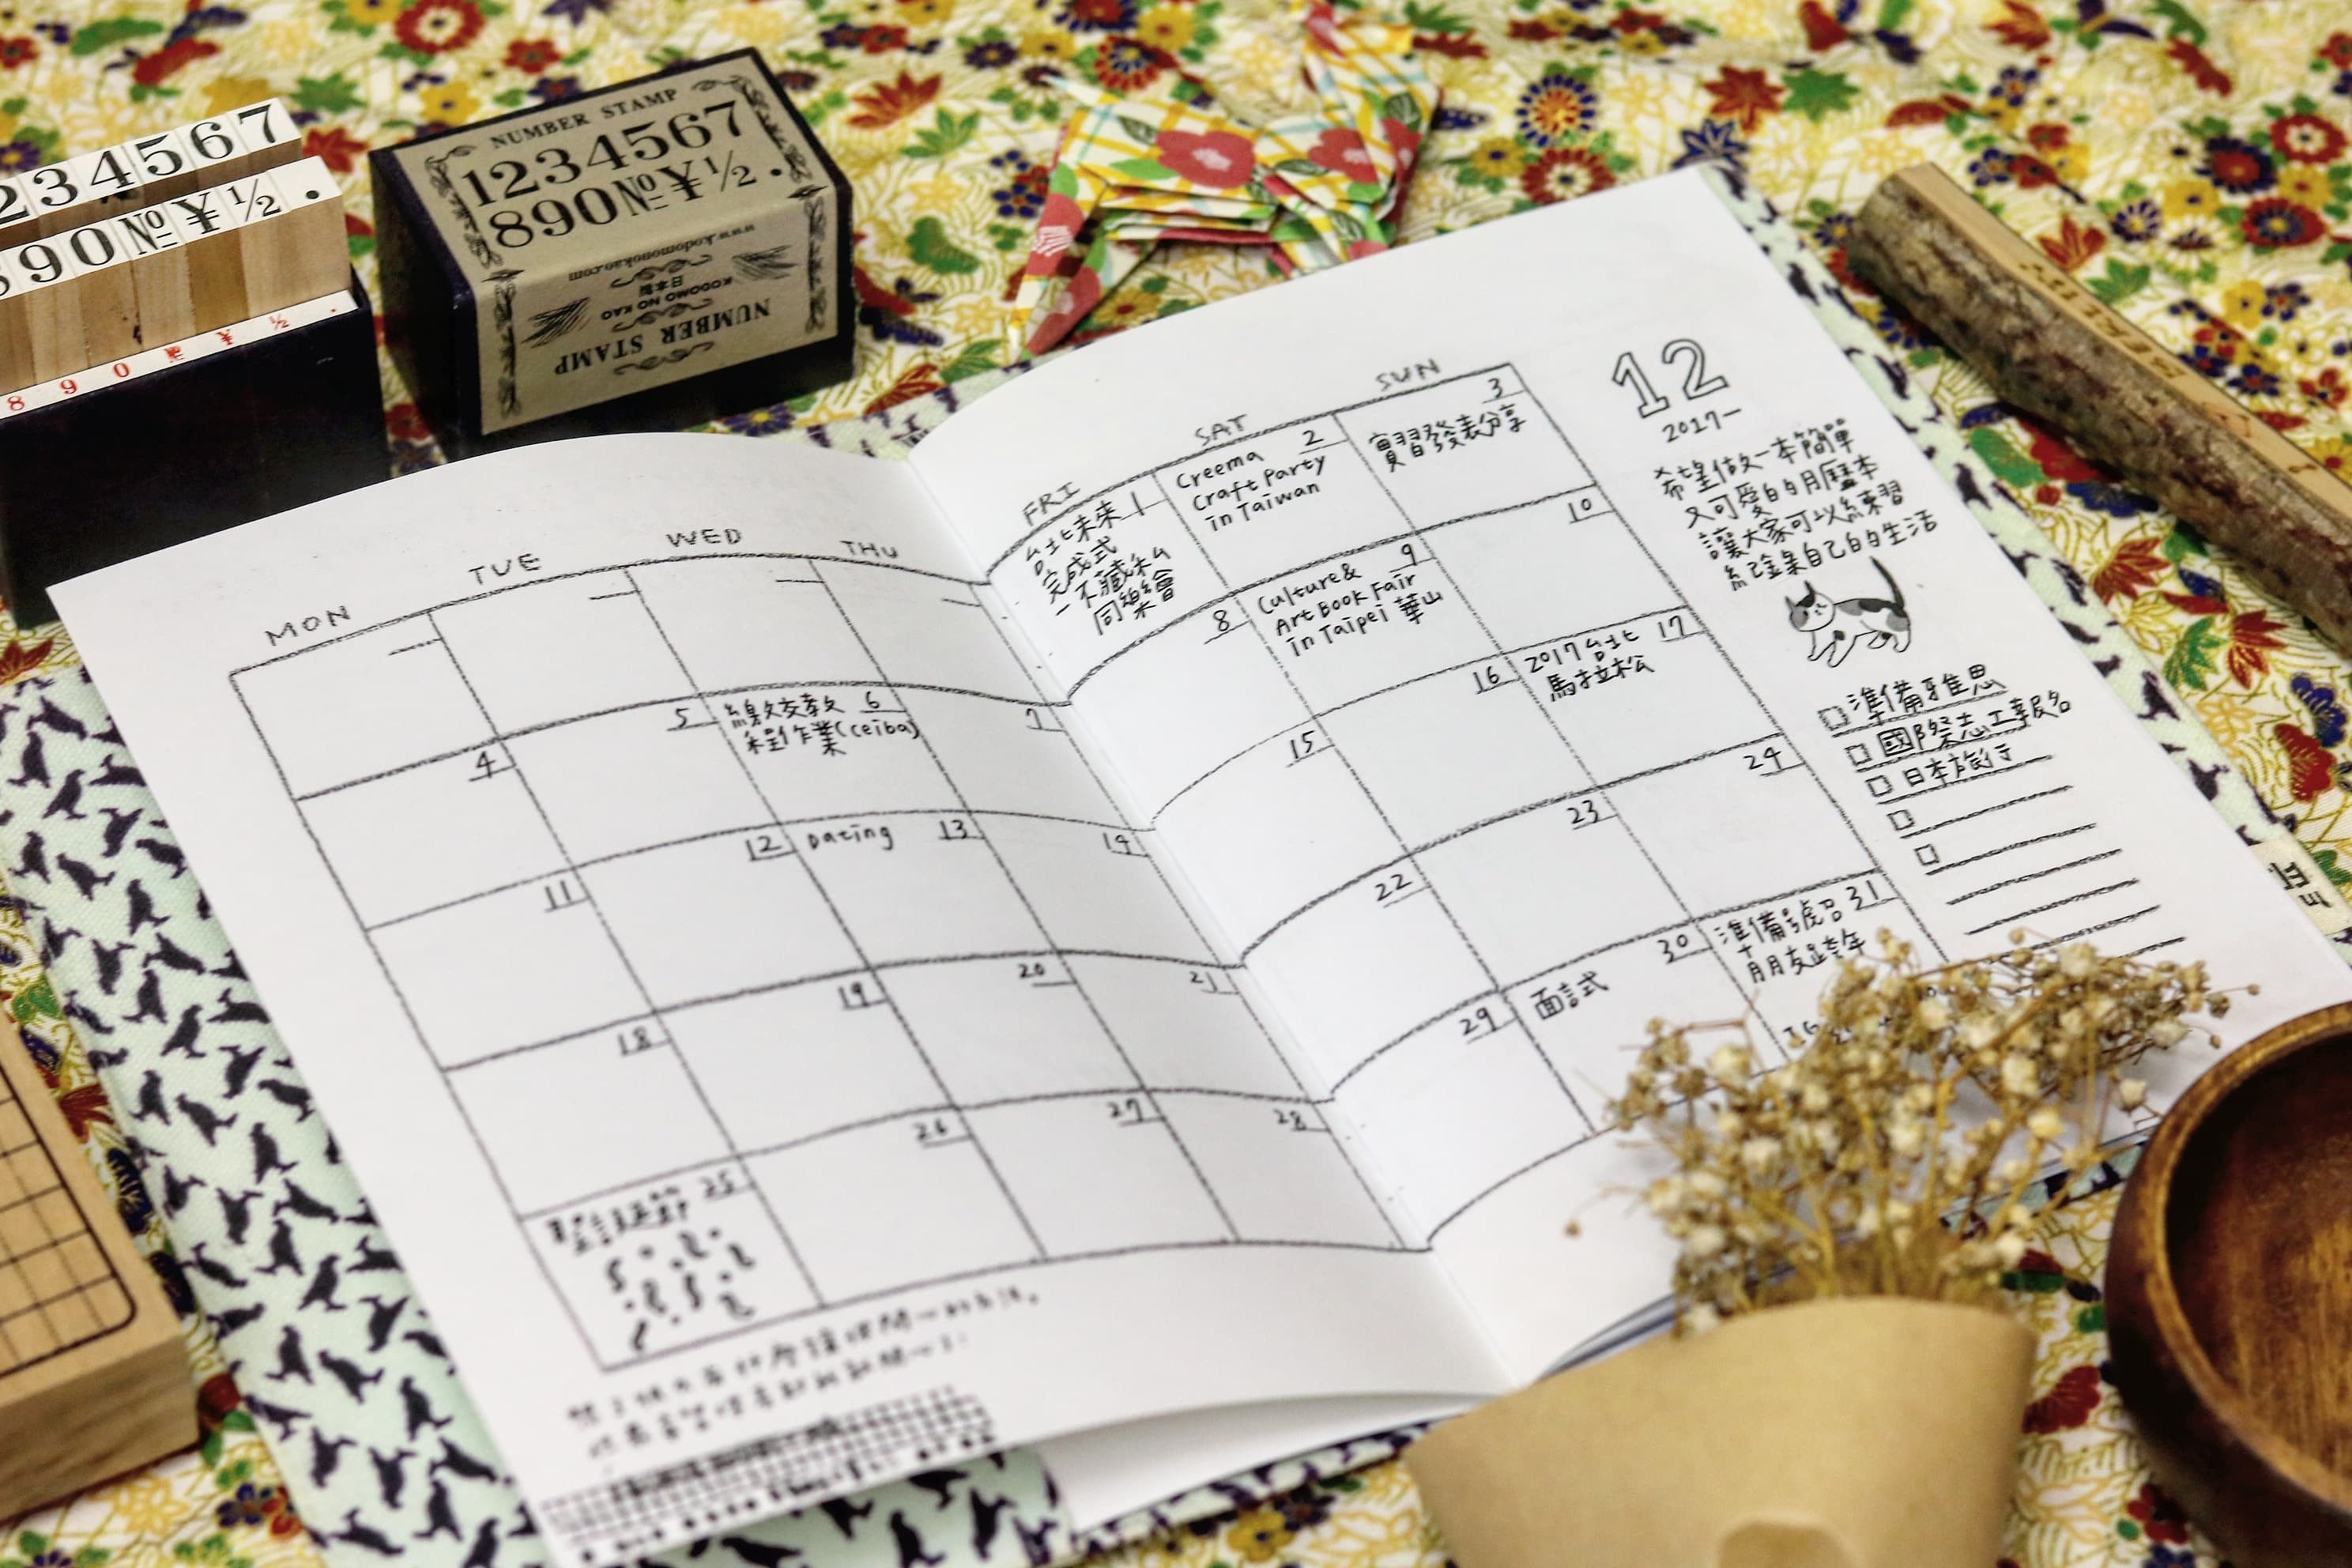 234567
890№¥½.
8 9 0 № ¥ ½ .
NUMBER STAMP
1234567
890№¥½.
NUMBER STAMP
KODOMO NO KAO
日本製
www.kodomonokao.com
MON
TUE
WED
THU
FRI
SAT
SUN
1
台北未來
完成式
-不藏私
同樂會
2
Creema
Craft Party
in Taiwan
3
實習發表分享
4
5
6
繳交教
程作業(ceiba)
7
8
9
Culture&
Art Book Fair
in Taipei 華山
10
11
12
13
Dating
14
15
16
17
2017 台北
馬拉松
18
19
20
21
22
23
24
25
26
27
28
29
30
面試
31
準備號召
朋友跨年
12
2017
希望做一本簡單
又可愛的月曆本
讓大家可以練習
紀錄自己的生活
□ 準備雅思
□ 國際志工報名
□ 日本旅行
□
□